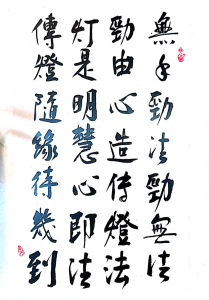 無勁法勁無法
勁由心造传燈法
灯是明慧心即法
傳燈隨緣待幾到